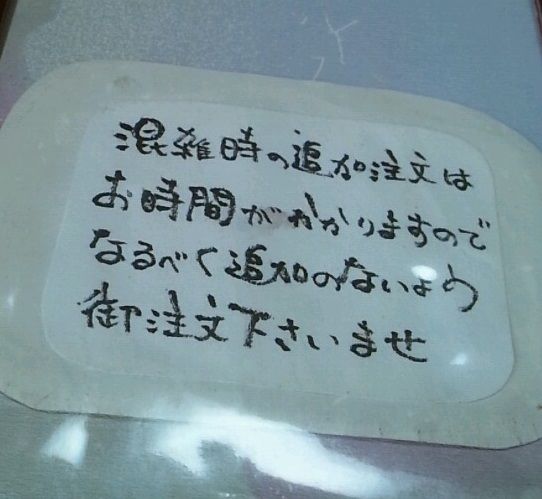 混雑時の追加注文は
お時間がかかりますので
なるべく追加のないよう
御注文下さいませ